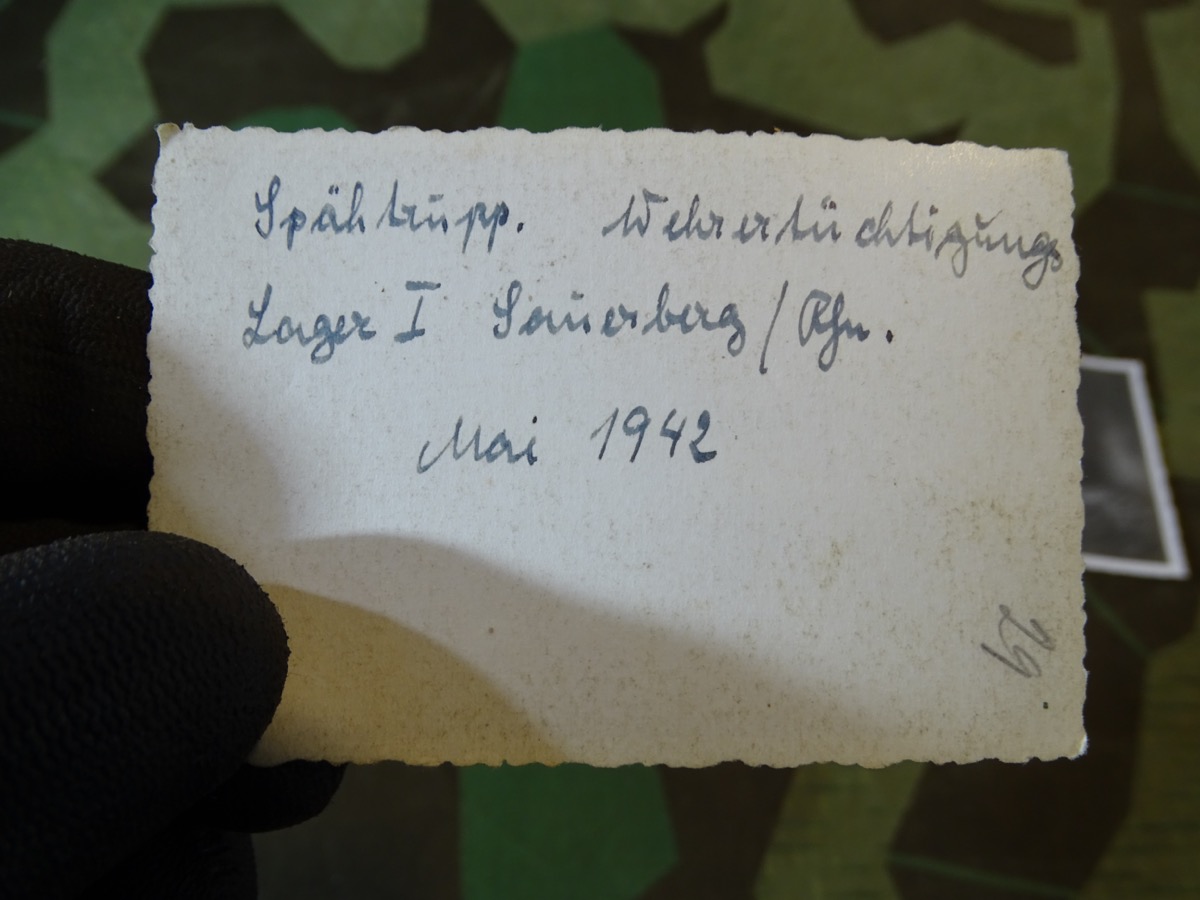 Spähtrupp. Wehrertüchtigungs
Lager I Sauerberg / Rhn.
Mai 1942